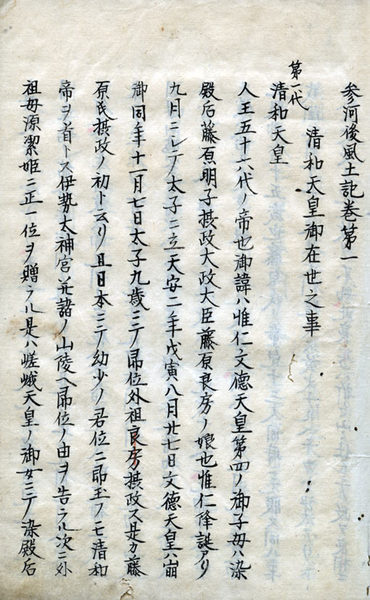 参河後風土記巻第一
清和天皇御在世之事
第一代
清和天皇
人王五十六代ノ帝也御諱ハ惟仁文徳天皇第四ノ御子母ハ染
殿后藤原明子摂政大政大臣藤原良房ノ娘也惟仁降誕アリ
九月ニシテ太子ニ立天安二年戊寅八月廿七日文徳天皇崩
御同年十一月七日太子九歳ニテ即位外祖良房摂政ス是乃藤
原氏摂政ノ初ト云リ且日本ニテ幼少ノ君位ニ即玉フモ清和
帝ヲ首トス伊勢太神宮并諸ノ山陵ヘ即位ノ由ヲ告ラル次ニ外
祖母源潔姫ニ正一位ヲ贈ラル是ハ嵯峨天皇ノ御女ニテ染殿后